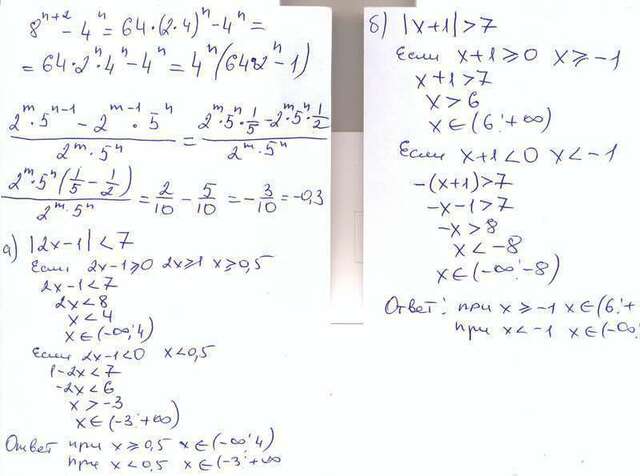 8ⁿ⁺² - 4ⁿ = 64 * (2 * 4)ⁿ - 4ⁿ =
= 64 * 2ⁿ * 4ⁿ - 4ⁿ = 4ⁿ(64*2ⁿ - 1)
(2ᵐ * 5ⁿ⁻¹ - 2ᵐ⁻¹ * 5ⁿ) / (2ᵐ * 5ⁿ) = (2ᵐ * 5ⁿ * 1/5 - 2ᵐ * 5ⁿ * 1/2) / (2ᵐ * 5ⁿ)
(2ᵐ * 5ⁿ(1/5 - 1/2)) / (2ᵐ * 5ⁿ) = 2/10 - 5/10 = -3/10 = -0,3
а) |2x-1| < 7
Если 2x-1≥0 2x≥1 x≥0,5
2x-1<7
2x<8
x<4
x∈(-∞;4)
Если 2x-1<0 x<0,5
1-2x<7
-2x<6
x>-3
x∈(-3;+∞)
Ответ при x≥0,5 x∈(-∞;4)
при x<0,5 x∈(-3;+∞
б) |x+1|>7
Если x+1≥0 x≥-1
x+1>7
x>6
x∈(6;+∞)
Если x+1<0 x<-1
-(x+1)>7
-x-1>7
-x>8
x<-8
x∈(-∞;-8)
Ответ: при x≥-1 x∈(6;+
при x<-1 x∈(-∞;